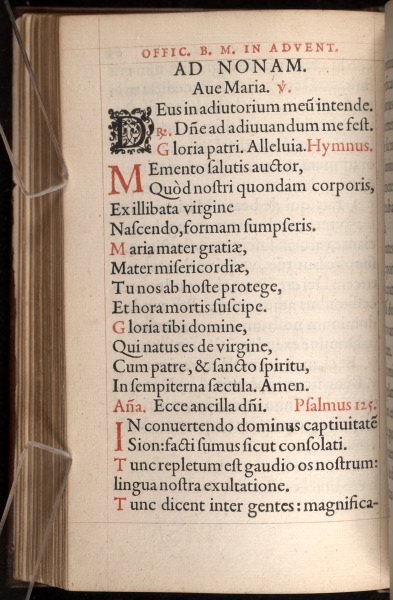 OFFIC. B. M. IN ADVENT.
AD NONAM.
Aue Maria. ℣.
Deus in adiutorium meũ intende.
℞. Dñe ad adiuuandum me fest.
Gloria patri. Alleluia. Hymnus.
Memento ſalutis auctor,
Quòd noſtri quondam corporis,
Ex illibata virgine
Naſcendo, formam ſumpſeris.
Maria mater gratiæ,
Mater miſericordiæ,
Tu nos ab hoſte protege,
Et hora mortis ſuſcipe.
Gloria tibi domine,
Qui natus es de virgine,
Cum patre, & ſancto ſpiritu,
In ſempiterna ſæcula. Amen.
Aña. Ecce ancilla dñi. Pſalmus 125.
IN conuertendo dominus captiuitatẽ
Sion: facti ſumus ſicut conſolati.
Tunc repletum eſt gaudio os noſtrum:
lingua noſtra exultatione.
Tunc dicent inter gentes: magnifica-